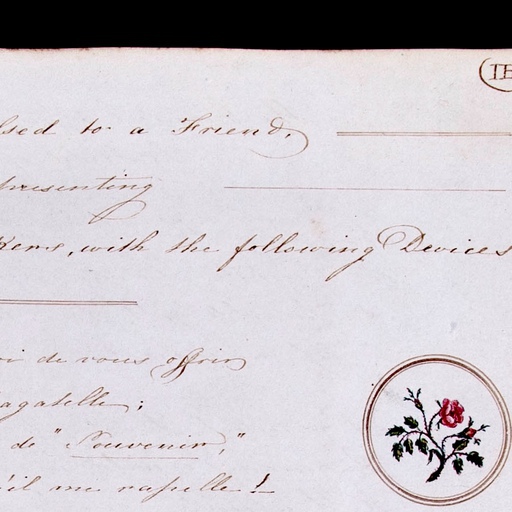 to a Friend,
presenting
with the following Devices
de vous offrir
bagatelle;
de "Souvenir,"
me rapelle!